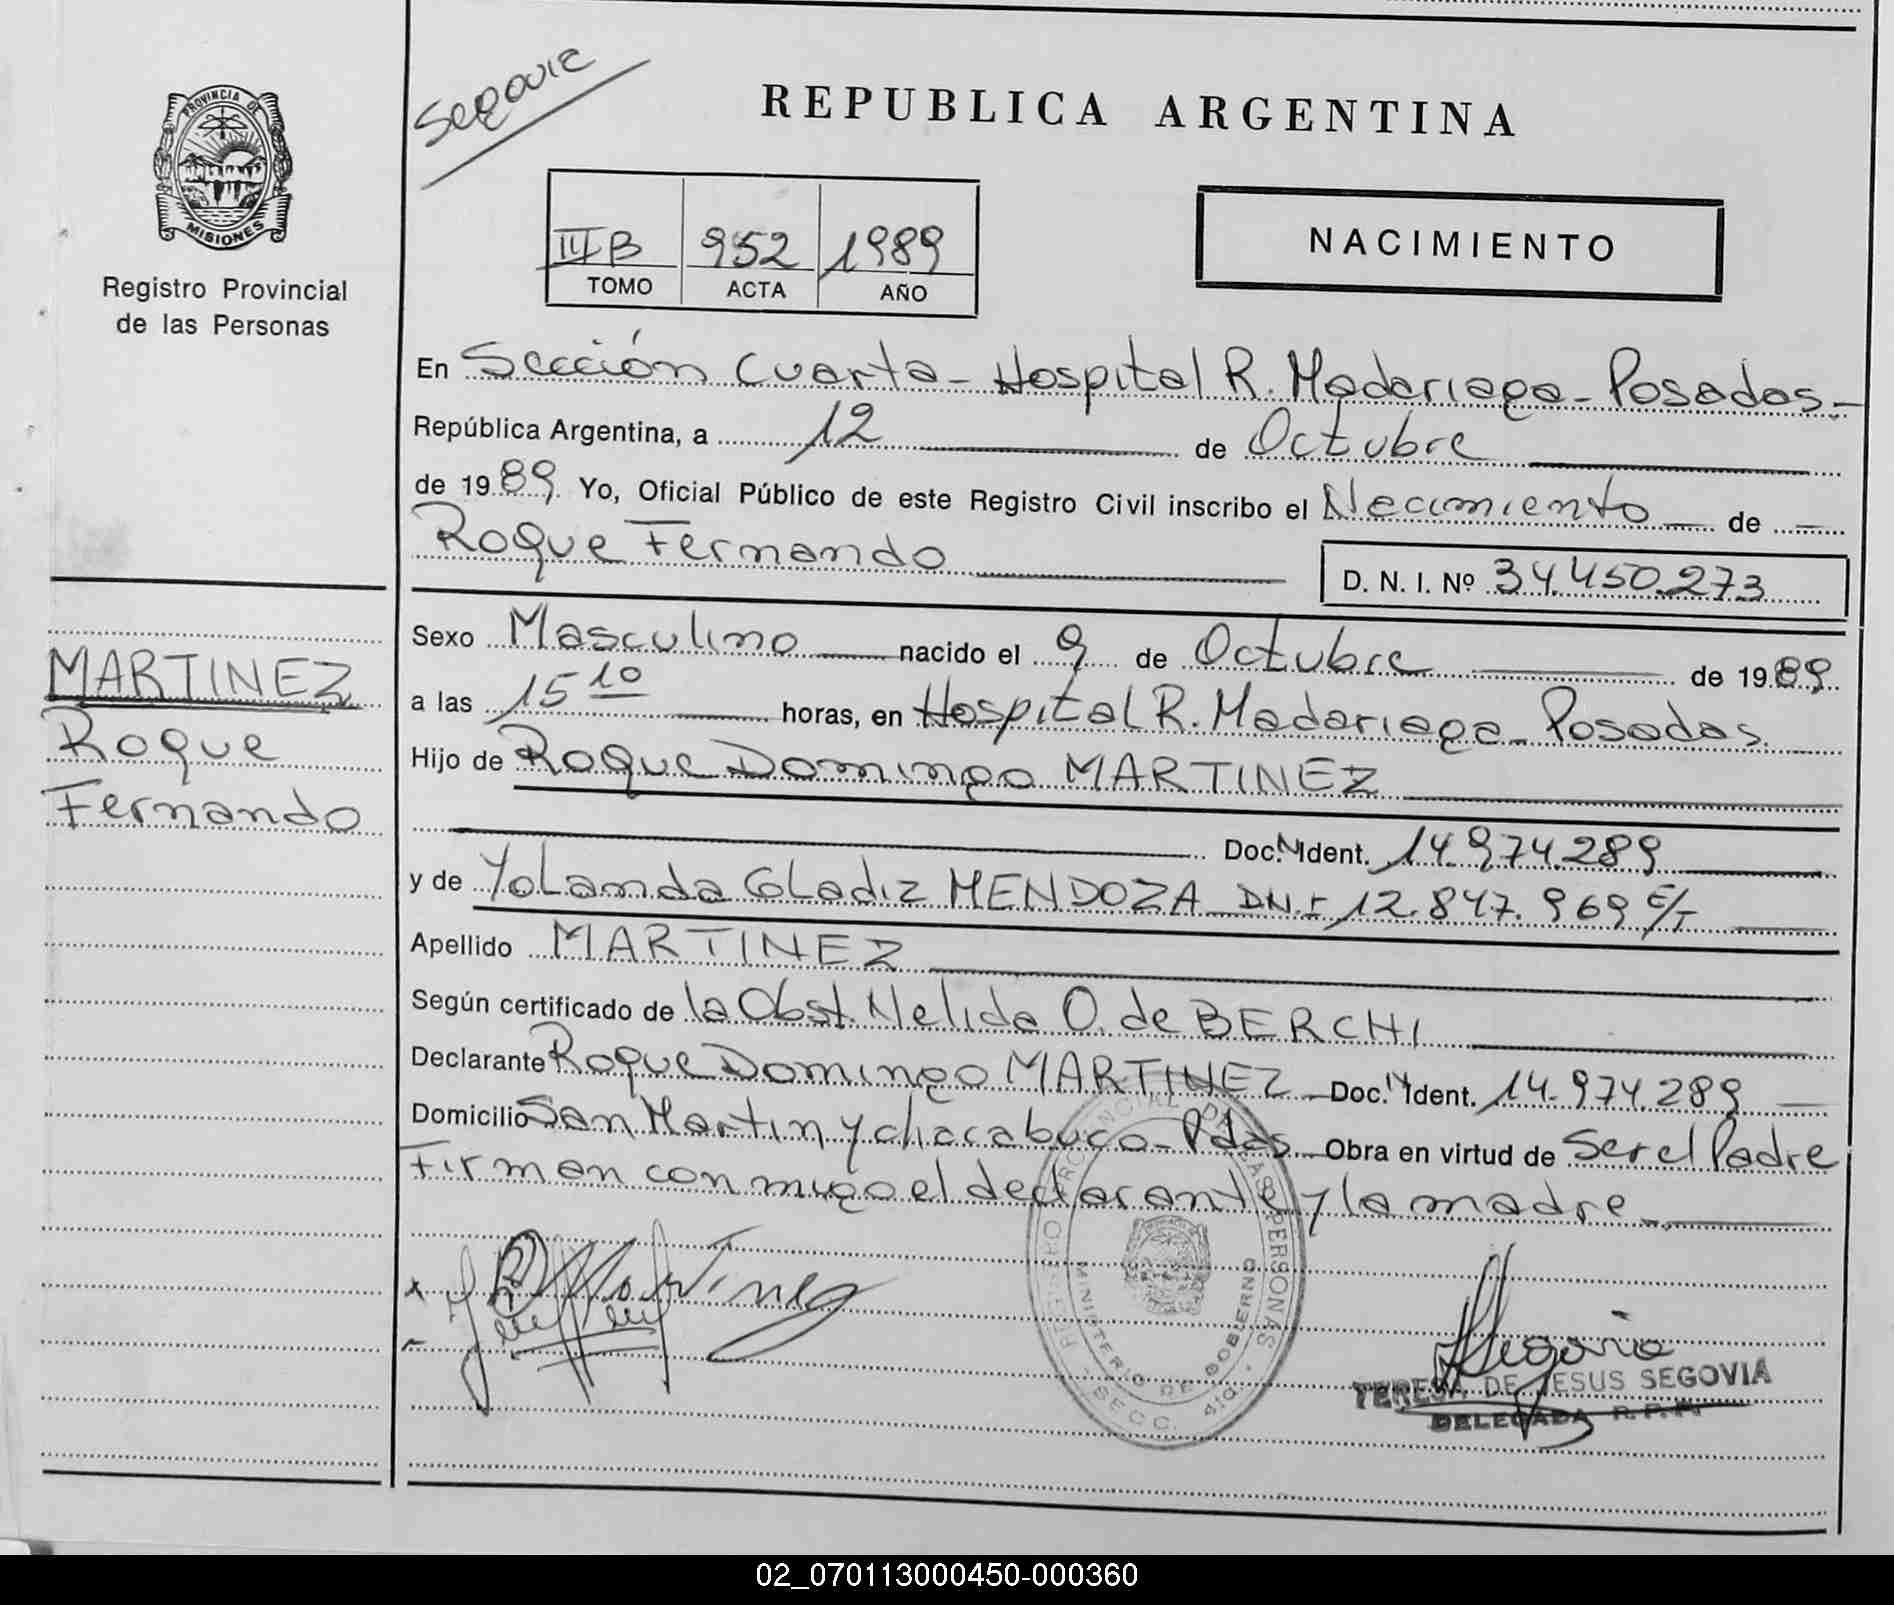 Segovia
REPUBLICA ARGENTINA
PROVINCIA DE
MISIONES
Registro Provincial
de las Personas
III B 952 1989
TOMO ACTA AÑO
NACIMIENTO
En Sección Cuarta - Hospital R. Madariaga - Posadas -
República Argentina, a 12 de Octubre
de 1989 Yo, Oficial Público de este Registro Civil inscribo el Nacimiento de
Roque Fernando D. N. I. Nº 34.450.273
MARTINEZ
Roque
Fernando
Sexo Masculino nacido el 9 de Octubre de 1989
a las 15 10 horas, en Hospital R. Madariaga - Posadas
Hijo de Roque Domingo MARTINEZ
Doc. N. Ident. 14.974.289
y de Yolanda Gladiz MENDOZA DN.I 12.847.969 E/T
Apellido MARTINEZ
Según certificado de la Obst. Nelida O. de BERCHI
Declarante Roque Domingo MARTINEZ Doc. N Ident. 14.974.289
Domicilio San Martin y chacabuco - Pdas Obra en virtud de Ser el Padre
Firman conmigo el declarante y la madre
Martinez
REGISTRO PROVINCIAL DE LAS PERSONAS
MINISTERIO DE GOBIERNO
SECC. 4ta.
Segovia
TERESA DE JESUS SEGOVIA
DELEGADA R. P. P.
02_070113000450-000360